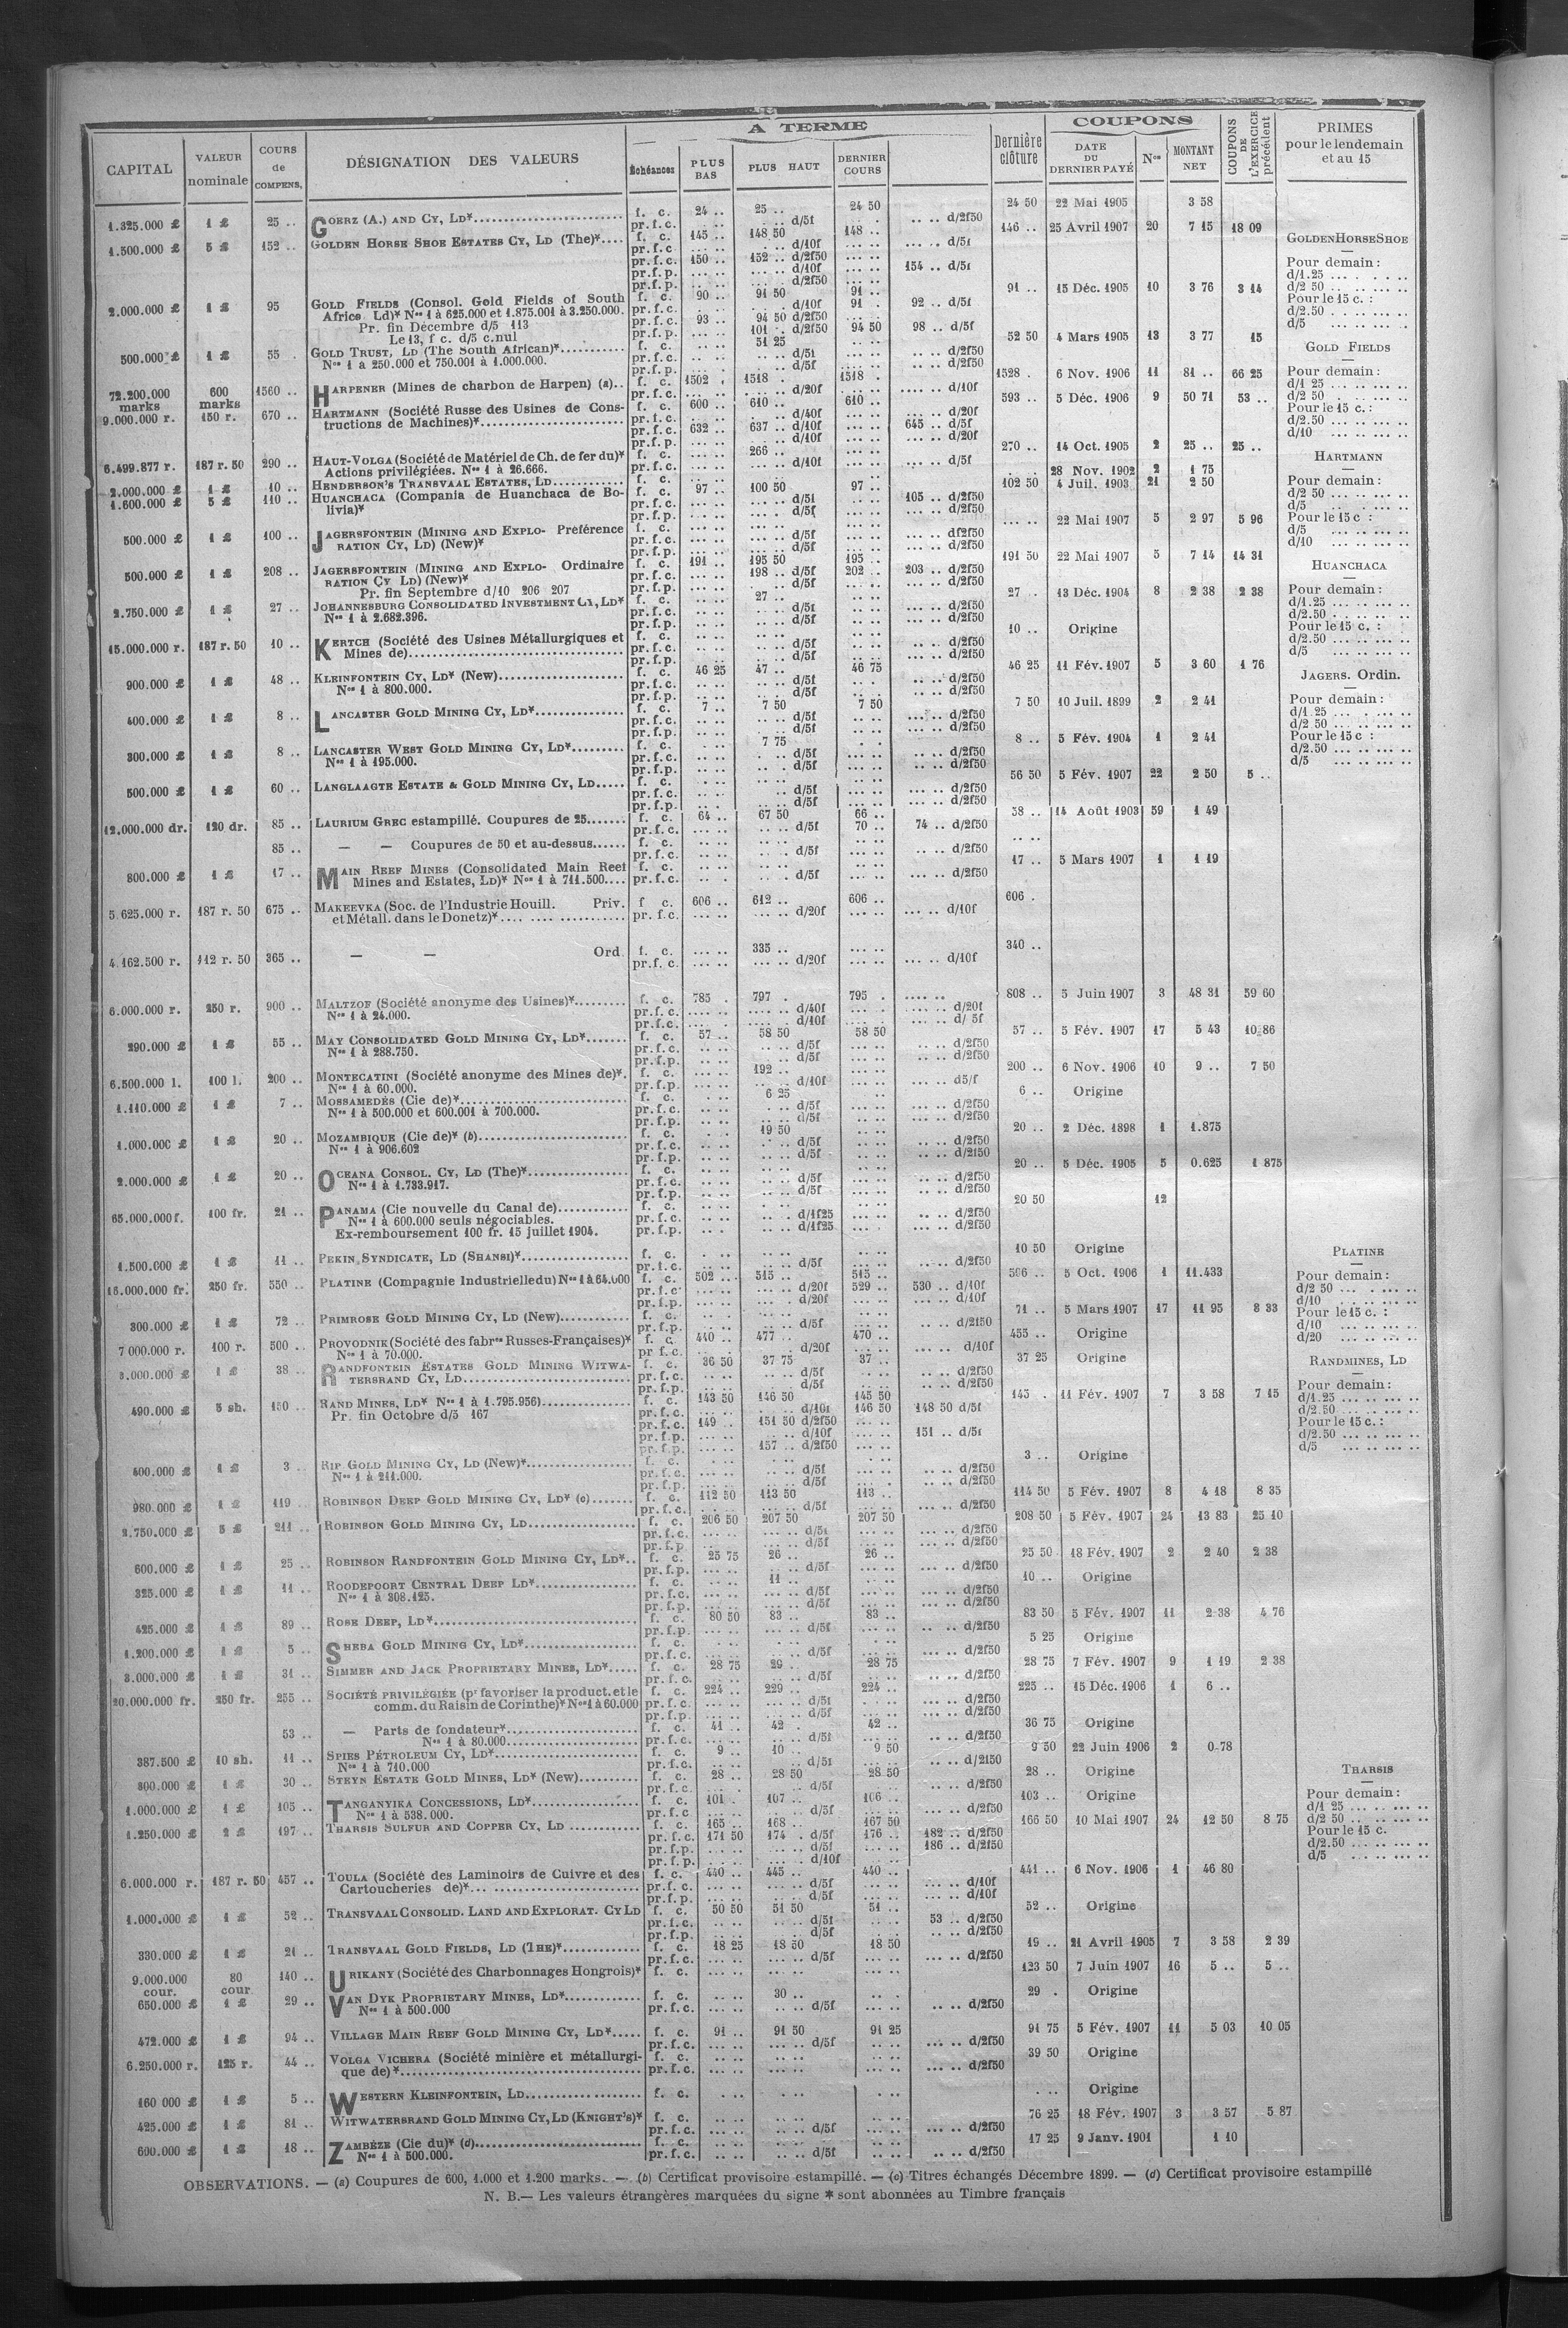 CAPITAL | VALEUR nominale | COURS de COMPENS. | DÉSIGNATION DES VALEURS | A TERME | Échéances | PLUS BAS | PLUS HAUT | DERNIER COURS | Dernière clôture | COUPONS | DATE DU DERNIER PAYÉ | Nos | MONTANT NET | COUPONS DE L'EXERCICE précédent | PRIMES pour le lendemain et au 15
1.325.000 £ | 1 £ | 25 .. | GOERZ (A.) AND CY, LD* | f. c. | 24 .. | 25 .. | 24 50 | 24 50 | 22 Mai 1905 | 3 58
pr.f.c. | d/5f | d/2f50
1.500.000 £ | 5 £ | 152 .. | GOLDEN HORSE SHOE ESTATES CY, LD (The)* | f. c. | 145 .. | 148 50 | 148 .. | 146 .. | 25 Avril 1907 | 20 | 7 15 | 18 09
pr.f.c. | d/10f | d/5f
pr.f.c. | 150 .. | 152 .. d/2f50
pr.f.p. | d/10f | 154 .. d/5f
pr.f.p. | d/2f50
2.000.000 £ | 1 £ | 95 | GOLD FIELDS (Consol. Gold Fields of South | f. c. | 90 .. | 91 50 | 91 .. | 91 .. | 15 Déc. 1905 | 10 | 3 76 | 3 14
Africa Ld)* Nos 1 à 625.000 et 1.875.001 à 3.250.000. | pr.f.c. | d/10f | 91 . | 92 .. d/5f
Pr. fin Décembre d/5 113 | pr.f.c. | 93 .. | 94 50 d/2f50
Le 13, f c. d/5 c.nul | pr.f.p. | 101 . d/2f50 | 94 50 | 98 .. d/5f
500.000 £ | 1 £ | 55 . | GOLD TRUST, LD (The South African)* | f. c. | 51 25 | 52 50 | 4 Mars 1905 | 13 | 3 77 | 15
Nos 1 à 250.000 et 750.001 à 1.000.000. | pr.f.c. | d/5f | d/2f50
pr.f.p. | d/5f | d/2f50
72.200.000 marks | 600 marks | 1560 .. | HARPENER (Mines de charbon de Harpen) (a).. | f. c. | 1502 . | 1518 . | 1518 . | 1528 . | 6 Nov. 1906 | 11 | 81 .. | 66 25
pr.f.c. | d/20f | d/10f
9.000.000 r. | 150 r. | 670 .. | HARTMANN (Société Russe des Usines de Cons- | f. c. | 600 .. | 610 .. | 610 .. | 593 .. | 5 Déc. 1906 | 9 | 50 71 | 53 ..
tructions de Machines)* | pr.f.c. | d/40f | d/20f
pr.f.c. | 632 .. | 637 .. d/10f | 645 .. d/5f
pr.f.p. | d/10f | d/20f
6.499.877 r. | 187 r. 50 | 290 .. | HAUT-VOLGA (Société de Matériel de Ch. de fer du)* | f. c. | 266 .. | 270 .. | 14 Oct. 1905 | 2 | 25 .. | 25 ..
Actions privilégiées. Nos 1 à 26.666. | pr.f.c. | d/10f | d/5f
2.000.000 £ | 1 £ | 10 .. | HENDERSON'S TRANSVAAL ESTATES, LD | f. c. | 28 Nov. 1902 | 2 | 1 75
1.600.000 £ | 5 £ | 110 .. | HUANCHACA (Compania de Huanchaca de Bo- | f. c. | 97 .. | 100 50 | 97 .. | 102 50 | 4 Juil. 1903 | 21 | 2 50
livia)* | pr.f.c. | d/5f | 105 .. d/2f50
pr.f.p. | d/5f | d/2f50
500.000 £ | 1 £ | 100 .. | JAGERSFONTEIN (MINING AND EXPLO- Préférence | f. c. | 22 Mai 1907 | 5 | 2 97 | 5 96
RATION CY, LD) (New)* | pr.f.c. | d/5f | d/2f50
pr.f.p. | d/5f | d/2f50
500.000 £ | 1 £ | 208 .. | JAGERSFONTEIN (MINING AND EXPLO- Ordinaire | f. c. | 191 .. | 195 50 | 195 .. | 191 50 | 22 Mai 1907 | 5 | 7 14 | 14 31
RATION CY LD) (New)* | pr.f.c. | 198 .. d/5f | 202 .. | 203 .. d/2f50
Pr. fin Septembre d/10 206 207 | pr.f.p. | d/5f | d/2f50
2.750.000 £ | 1 £ | 27 .. | JOHANNESBURG CONSOLIDATED INVESTMENT CY, LD* | f. c. | 27 .. | 27 . | 13 Déc. 1904 | 8 | 2 38 | 2 38
Nos 1 à 2.682.396. | pr.f.c. | d/5f | d/2f50
pr.f.p. | d/5f | d/2f50
15.000.000 r. | 187 r. 50 | 10 .. | KERTCH (Société des Usines Métallurgiques et | f. c. | 10 .. | Origine
Mines de) | pr.f.c. | d/5f | d/2f50
pr.f.p. | d/5f | d/2f50
900.000 £ | 1 £ | 48 .. | KLEINFONTEIN CY, LD* (New) | f. c. | 46 25 | 47 .. | 46 75 | 46 25 | 11 Fév. 1907 | 5 | 3 60 | 1 76
Nos 1 à 800.000. | pr.f.c. | d/5f | d/2f50
pr.f.p. | d/5f | d/2f50
400.000 £ | 1 £ | 8 .. | LANCASTER GOLD MINING CY, LD* | f. c. | 7 .. | 7 50 | 7 50 | 7 50 | 10 Juil. 1899 | 2 | 2 41
pr.f.c. | d/5f | d/2f50
pr.f.p. | d/5f | d/2f50
300.000 £ | 1 £ | 8 .. | LANCASTER WEST GOLD MINING CY, LD* | f. c. | 7 75 | 8 .. | 5 Fév. 1904 | 1 | 2 41
Nos 1 à 195.000. | pr.f.c. | d/5f | d/2f50
pr.f.p. | d/5f | d/2f50
500.000 £ | 1 £ | 60 .. | LANGLAAGTE ESTATE & GOLD MINING CY, LD | f. c. | 56 50 | 5 Fév. 1907 | 22 | 2 50 | 5 ..
pr.f.c. | d/5f | d/2f50
pr.f.p. | d/5f | d/2f50
12.000.000 dr. | 120 dr. | 85 .. | LAURIUM GREC estampillé. Coupures de 25 | f. c. | 64 .. | 67 50 | 66 .. | 58 .. | 14 Août 1903 | 59 | 1 49
pr.f.c. | d/5f | 70 .. | 74 .. d/2f50
85 .. | — — Coupures de 50 et au-dessus | f. c.
pr.f.c. | d/5f | d/2f50
800.000 £ | 1 £ | 17 .. | MAIN REEF MINES (Consolidated Main Reef | f. c. | 17 .. | 5 Mars 1907 | 1 | 1 19
Mines and Estates, LD)* Nos 1 à 711.500 | pr.f.c. | d/5f | d/2f50
5.625.000 r. | 187 r. 50 | 675 .. | MAKEEVKA (Soc. de l'Industrie Houill. Priv. | f c. | 606 .. | 612 .. | 606 .. | 606 .
et Métall. dans le Donetz)* | pr.f.c. | d/20f | d/10f
4.162.500 r. | 112 r. 50 | 365 .. | — — Ord | f. c. | 335 .. | 340 ..
pr.f.c. | d/20f | d/10f
6.000.000 r. | 250 r. | 900 .. | MALTZOF (Société anonyme des Usines)* | f. c. | 785 . | 797 . | 795 . | 808 .. | 5 Juin 1907 | 3 | 48 31 | 59 60
Nos 1 à 24.000. | pr.f.c. | d/40f | d/20f
pr.f.c. | d/10f | d/ 5f
290.000 £ | 1 £ | 55 .. | MAY CONSOLIDATED GOLD MINING CY, LD* | f. c. | 57 .. | 58 50 | 58 50 | 57 .. | 5 Fév. 1907 | 17 | 5 43 | 10 86
Nos 1 à 288.750. | pr.f.c. | d/5f | d/2f50
pr.f.p. | d/5f | d/2f50
6.500.000 l. | 100 l. | 200 .. | MONTECATINI (Société anonyme des Mines de)*. | f. c. | 192 .. | 200 .. | 6 Nov. 1906 | 10 | 9 .. | 7 50
Nos 1 à 60.000. | pr.f.p. | d/10f | d5/f
1.110.000 £ | 1 £ | 7 .. | MOSSAMEDÈS (Cie de)* | f. c. | 6 25 | 6 .. | Origine
Nos 1 à 500.000 et 600.001 à 700.000. | pr.f.c. | d/5f | d/2f50
pr.f.p. | d/5f | d/2f50
1.000.000 £ | 1 £ | 20 .. | MOZAMBIQUE (Cie de)* (b) | f. c. | 19 50 | 20 .. | 2 Déc. 1898 | 1 | 1.875
Nos 1 à 906.602 | pr.f.c. | d/5f | d/2f50
pr.f.p. | d/5f | d/2f50
2.000.000 £ | 1 £ | 20 .. | OCEANA CONSOL. CY, LD (The)* | f. c. | 20 .. | 5 Déc. 1905 | 5 | 0.625 | 1 875
Nos 1 à 1.733.917. | pr.f.c. | d/5f | d/2f50
pr.f.p. | d/5f | d/2f50
65.000.000 f. | 100 fr. | 21 .. | PANAMA (Cie nouvelle du Canal de) | f. c. | 20 50 | 12
Nos 1 à 600.000 seuls négociables. | pr.f.c. | d/1f25 | d/2f50
Ex-remboursement 100 fr. 15 juillet 1904. | pr.f.p. | d/1f25 | d/2f50
1.500.000 £ | 1 £ | 11 .. | PEKIN SYNDICATE, LD (SHANSI)* | f. c. | 10 50 | Origine
pr.f.c. | d/5f | d/2f50
16.000.000 fr. | 250 fr. | 550 .. | PLATINE (Compagnie Industrielle du) Nos 1 à 64.000 | f. c. | 502 .. | 515 .. | 515 .. | 506 .. | 5 Oct. 1906 | 1 | 11.433
pr.f.c. | d/20f | 529 .. | 530 .. d/10f
pr.f.p. | d/20f | d/10f
300.000 £ | 1 £ | 72 .. | PRIMROSE GOLD MINING CY, LD (New) | f. c. | 71 .. | 5 Mars 1907 | 17 | 11 95 | 8 33
pr.f.p. | d/5f | d/2f50
7 000.000 r. | 100 r. | 500 .. | PROVODNIK (Société des fabres Russes-Françaises)* | f. c. | 440 .. | 477 .. | 470 .. | 455 .. | Origine
Nos 1 à 70.000. | pr f.c. | d/20f | d/10f
3.000.000 £ | 1 £ | 38 .. | RANDFONTEIN ESTATES GOLD MINING WITWA- | f. c. | 36 50 | 37 75 | 37 .. | 37 25 | Origine
TERSRAND CY, LD | pr.f.c. | d/5f | d/2f50
pr.f.p. | d/5f | d/2f50
490.000 £ | 5 sh. | 150 .. | RAND MINES, LD* Nos 1 à 1.795.956) | f. c. | 143 50 | 146 50 | 145 50 | 143 . | 11 Fév. 1907 | 7 | 3 58 | 7 15
Pr. fin Octobre d/5 167 | pr.f.c. | d/10f | 146 50 | 148 50 d/5f
pr.f.c. | 149 .. | 151 50 d/2f50
pr.f.p. | d/10f | 151 .. d/5f
pr.f.p. | 157 .. d/2f50
400.000 £ | 1 £ | 3 .. | RIP GOLD MINING CY, LD (New)* | f. c. | 3 .. | Origine
Nos 1 à 211.000. | pr.f.c. | d/5f | d/2f50
pr.f.p. | d/5f | d/2f50
980.000 £ | 1 £ | 119 .. | ROBINSON DEEP GOLD MINING CY, LD* (c) | f. c. | 112 50 | 113 50 | 113 .. | 114 50 | 5 Fév. 1907 | 8 | 4 18 | 8 35
pr.f.c. | d/5f | d/2f50
2.750.000 £ | 5 £ | 211 .. | ROBINSON GOLD MINING CY, LD | f. c. | 206 50 | 207 50 | 207 50 | 208 50 | 5 Fév. 1907 | 24 | 13 83 | 25 10
pr.f.c. | d/5f | d/2f50
pr.f.p | d/5f | d/2f50
600.000 £ | 1 £ | 25 .. | ROBINSON RANDFONTEIN GOLD MINING CY, LD*.. | f. c. | 25 75 | 26 .. | 26 .. | 25 50 | 18 Fév. 1907 | 2 | 2 40 | 2 38
pr.f.p. | d/5f | d/2f50
325.000 £ | 1 £ | 11 .. | ROODEPOORT CENTRAL DEEP LD* | f. c. | 11 .. | 10 .. | Origine
Nos 1 à 308.125. | pr.f.c. | d/5f | d/2f50
pr.f.p. | d/5f | d/2f50
425.000 £ | 1 £ | 89 .. | ROSE DEEP, LD* | f. c. | 80 50 | 83 .. | 83 .. | 83 50 | 5 Fév. 1907 | 11 | 2 38 | 4 76
pr.f.p. | d/5f | d/2f50
1.200.000 £ | 1 £ | 5 .. | SHEBA GOLD MINING CY, LD* | f. c. | 5 25 | Origine
pr.f.c. | d/5f | d/2f50
3.000.000 £ | 1 £ | 31 .. | SIMMER AND JACK PROPRIETARY MINES, LD* | f. c. | 28 75 | 29 .. | 28 75 | 28 75 | 7 Fév. 1907 | 9 | 1 19 | 2 38
pr.f.c. | d/5f | d/2f50
20.000.000 fr. | 250 fr. | 255 .. | SOCIÉTÉ PRIVILÉGIÉE (pr favoriser la product. et le | f. c. | 224 .. | 229 .. | 224 .. | 225 .. | 15 Déc. 1906 | 1 | 6 ..
comm. du Raisin de Corinthe)* Nos 1 à 60.000 | pr.f.c. | d/5f | d/2f50
pr.f.p. | d/5f | d/2f50
53 .. | — Parts de fondateur* | f. c. | 41 .. | 42 . | 42 .. | 36 75 | Origine
Nos 1 à 80.000 | pr.f.c. | d/5f | d/2f50
387.500 £ | 10 sh. | 11 .. | SPIES PETROLEUM CY, LD* | f. c. | 9 .. | 10 .. | 9 50 | 9 50 | 22 Juin 1906 | 2 | 0-78
Nos 1 à 710.000 | pr.f.c. | d/5f | d/2f50
800.000 £ | 1 £ | 30 .. | STEYN ESTATE GOLD MINES, LD* (New) | f. c. | 28 .. | 28 50 | 28 50 | 28 .. | Origine
pr.f.c. | d/5f | d/2f50
1.000.000 £ | 1 £ | 105 .. | TANGANYIKA CONCESSIONS, LD* | f. c. | 101 . | 107 .. | 106 .. | 103 .. | Origine
Nos 1 à 538.000. | pr.f.c | d/5f | d/2f50
1.250.000 £ | 2 £ | 197 .. | THARSIS SULFUR AND COPPER CY, LD | f. c. | 165 .. | 168 .. | 167 50 | 166 50 | 10 Mai 1907 | 24 | 12 50 | 8 75
pr.f.c. | 171 50 | 174 . d/5f | 176 .. | 182 .. d/2f50
pr.f.p. | d/5f | 186 .. d/2f50
pr.f.p. | d/10f
6.000.000 r. | 187 r. 50 | 457 .. | TOULA (Société des Laminoirs de Cuivre et des | f. c. | 440 .. | 445 .. | 440 .. | 441 .. | 6 Nov. 1906 | 1 | 46 80
Cartoucheries de)* | pr.f.c. | d/5f | d/10f
pr.f.p. | d/5f | d/10f
1.000.000 £ | 1 £ | 52 .. | TRANSVAAL CONSOLID. LAND AND EXPLORAT. CY LD | f. c. | 50 50 | 51 50 | 51 .. | 52 .. | Origine
pr.f.c. | d/5f | 53 .. d/2f50
pr.f.p. | d/5f | d/2f50
330.000 £ | 1 £ | 21 .. | TRANSVAAL GOLD FIELDS, LD (THE)* | f. c. | 18 25 | 18 50 | 18 50 | 19 .. | 21 Avril 1905 | 7 | 3 58 | 2 39
pr.f.c. | d/5f | d/2f50
9.000.000 cour. | 80 cour | 140 .. | URIKANY (Société des Charbonnages Hongrois)* | f. c. | 123 50 | 7 Juin 1907 | 16 | 5 .. | 5 ..
650.000 £ | 1 £ | 29 .. | VAN DYK PROPRIETARY MINES, LD* | f. c. | 30 .. | 29 . | Origine
Nos 1 à 500.000 | pr.f.c. | d/5f | d/2f50
472.000 £ | 1 £ | 94 .. | VILLAGE MAIN REEF GOLD MINING CY, LD* | f. c. | 91 .. | 91 50 | 91 25 | 91 75 | 5 Fév. 1907 | 11 | 5 03 | 10 05
pr.f.c. | d/5f | d/2f50
6.250.000 r. | 125 r. | 44 .. | VOLGA VICHERA (Société minière et métallurgi- | f. c. | 39 50 | Origine
que de)* | pr.f.c. | d/2f50
160 000 £ | 1 £ | 5 .. | WESTERN KLEINFONTEIN, LD | f. c. | Origine
425.000 £ | 1 £ | 81 .. | WITWATERSRAND GOLD MINING CY, LD (KNIGHT'S)* | f. c. | 76 25 | 18 Fév. 1907 | 3 | 3 57 | 5 87
pr.f.c. | d/5f | d/2f50
600.000 £ | 1 £ | 18 .. | ZAMBÈZE (Cie du)* (d) | f. c. | 17 25 | 9 Janv. 1901 | 1 10
Nos 1 à 500.000. | pr.f.c. | d/5f | d/2f50
GOLDEN HORSE SHOE
Pour demain :
d/1.25
d/2 50
Pour le 15 c. :
d/2.50
d/5
GOLD FIELDS
Pour demain :
d/1 25
d/2 50
Pour le 15 c. :
d/2.50
d/10
HARTMANN
Pour demain :
d/2 50
d/5
Pour le 15 c :
d/5
d/10
HUANCHACA
Pour demain :
d/1.25
d/2.50
Pour le 15 c. :
d/2.50
d/5
JAGERS. Ordin.
Pour demain :
d/1.25
d/2 50
Pour le 15 c :
d/2.50
d/5
PLATINE
Pour demain :
d/2 50
d/10
Pour le 15 c. :
d/10
d/20
RANDMINES, LD
Pour demain :
d/1.25
d/2.50
Pour le 15 c. :
d/2.50
d/5
THARSIS
Pour demain :
d/1 25
d/2 50
Pour le 15 c.
d/2.50
d/5
OBSERVATIONS. — (a) Coupures de 600, 1.000 et 1.200 marks. — (b) Certificat provisoire estampillé. — (c) Titres échangés Décembre 1899. — (d) Certificat provisoire estampillé
N. B.— Les valeurs étrangères marquées du signe * sont abonnées au Timbre français